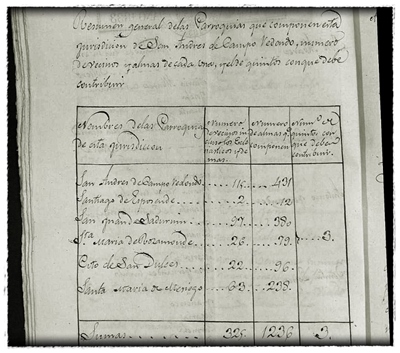 Resumen general de las Parroquias que componen esta
jurisdicion de San Andres de Campo Redondo, numero
de vecinos y almas de cada una, y el de quintos con que debe
contribuir
Nombres de las Parroquias
de esta jurisdicion
Numero
de vecinos in
clusos los Ecle
siasticos y de
mas.
Numero
de almas q.
componen
Num.º de
quintos con
que deben
contribuir.
San Andres de Campo Redondo. 115. 431
Santiago de Esposende. 2. 12
San Juan de Sadurnin. 97. 380
S.ta Maria de Rozamonde. 26. 79. 3.
Coto de San Dulces. 22. 96.
Santa Maria de 63. 238.
Sumas. 325. 1236. 3.